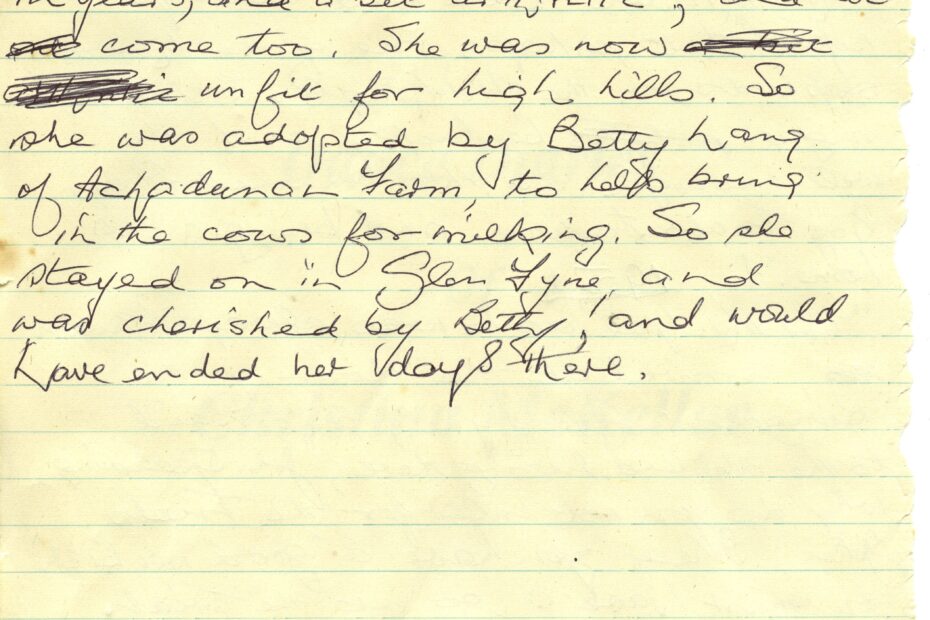 in years, and a bit arthritic, and
come too. She was now
unfit for high hills. So
she was adopted by Betty Lang
of Achadunan Farm, to help bring
in the cows for milking. So she
stayed on in Glen Fyne, and
was cherished by Betty, and would
have ended her days there.